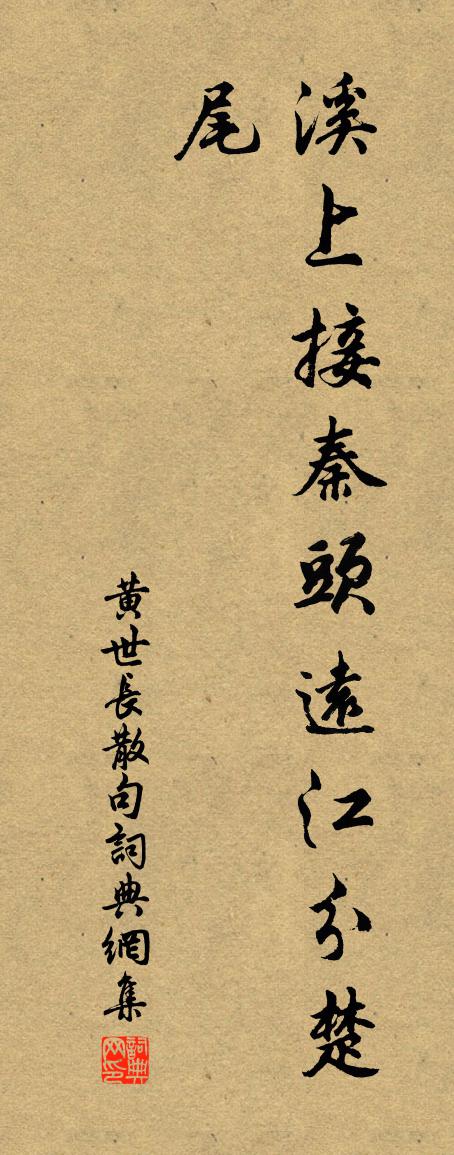 溪上接秦頭遠江分楚
尾
黄世長散句詞典網集
詞典
网印